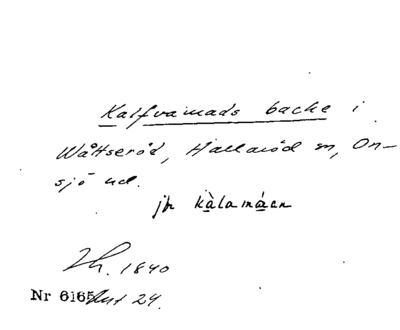 Kalfvamads backe i
Wåttseröd, Hallaröd sn, On-
sjö hd.
jfr kàlamáen
Th. 1840
Nr 6165 24.